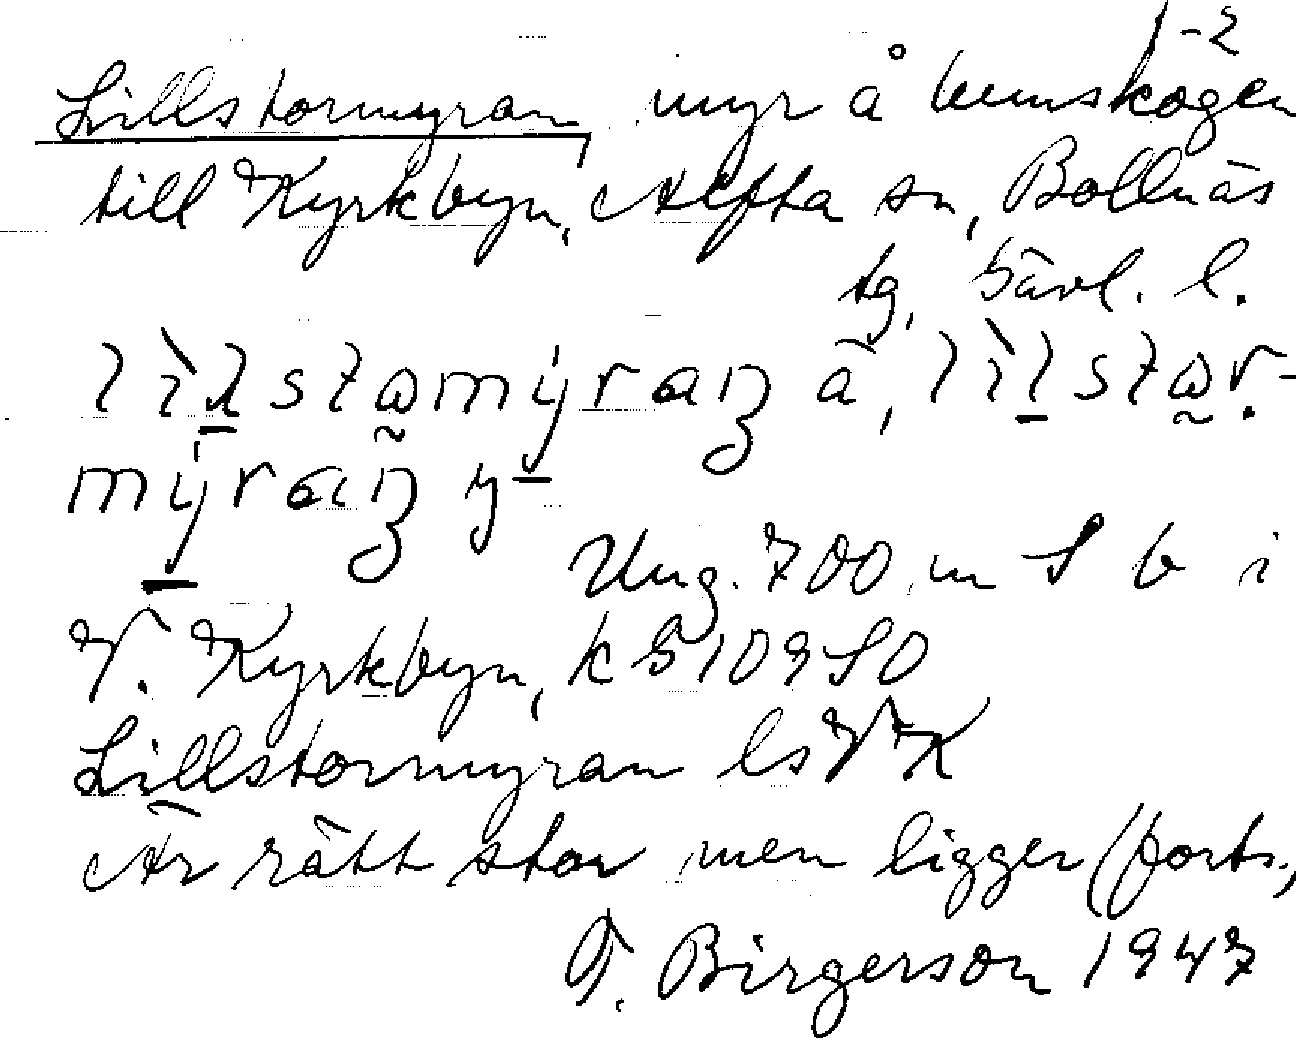 1-2
Lillstormyran, myr å hemskogen
till Kyrkbyn, Alfta sn, Bollnäs
tg, Gävl. l.
Ung. 700 m S b i
V. Kyrkbyn, k G 109 SO
Lillstormyran ls VK
Är rätt stor men ligger (forts.,
T. Birgerson 1947